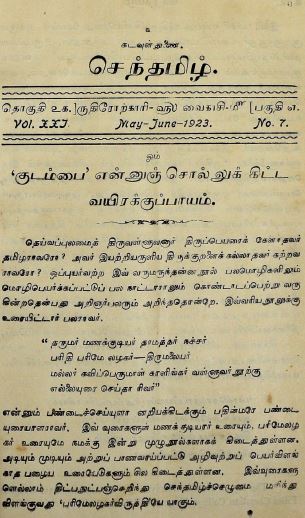 உ
கடவுள் துணை.
செந்தமிழ்.
தொகுதி உக.] ருதிரோற்காரி-ஹு வைகாசி-மீ [பகுதி எ.
Vol. XXI. May-June-1923. No. 7.
ஓம்
‘குடம்பை’ என்னுஞ் சொல்லுக் கிட்ட
வயிரக்குப்பாயம்.
தெய்வப்புலமைத் திருவள்ளுவனார் திருப்பெயரைக் கேளாதவர்
தமிழராவரோ? அவர் இயற்றியருளிய திருக்குறளைக் கல்லாதவர் கற்றவ
ராவரோ? ஒப்புயர்வற்ற இவ் வருமருந்தன்னநூல் பலமொழிகளிலும்
மொழிபெயர்க்கப்பட்டுப் பல நாட்டாராலும் கொண்டாடப்பெற்று வரு
கின்றதென்பது அறிஞர்பலரும் அறிந்ததொன்றே. இவ்வரியநூலுக்கு
உரையிட்டார் பலராவர்.
“தருமர் மணக்குடியர் தாமத்தர் நச்சர்
பரிதி பரிமே லழகர்—திருமலையர்
மல்லர் கவிப்பெருமாள் காளிங்கர் வள்ளுவர்நூற்கு
எல்லையுரை செய்தா ரிவர்”
என்னும் பண்டைச்செய்யுளா னறியக்கிடக்கும் பதின்மரே பண்டை
யுரையாளராவர். இவ் வுரைகளுள் மணக் குடியார் உரையும், பரிமேலழ
கர் உரையுமே நமக்கு இன்று முழுநூல்களாகக் கிடைத்துள்ளன.
அடியும் முடியும் அற்றுப் பாணவாய்ப்பட்டு அழிவுற்றுப் பெயர்விளங்
காத பழைய உரையேடுகளும் சில கிடைத்துள்ளன. இவ்வுரைகளு
ளெல்லாம் திட்பநுட்பஞ்செறிந்து செந்தமிழ்ச்செழுமை மரிந்து
விளங்குவது ‘பரிமேலழகர்விருத்தி’யே யாகும்.